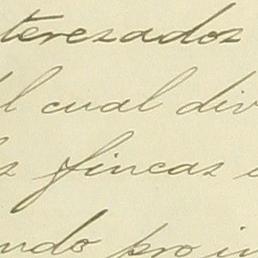 terezados
l cual div
s fincas
ndo pro in